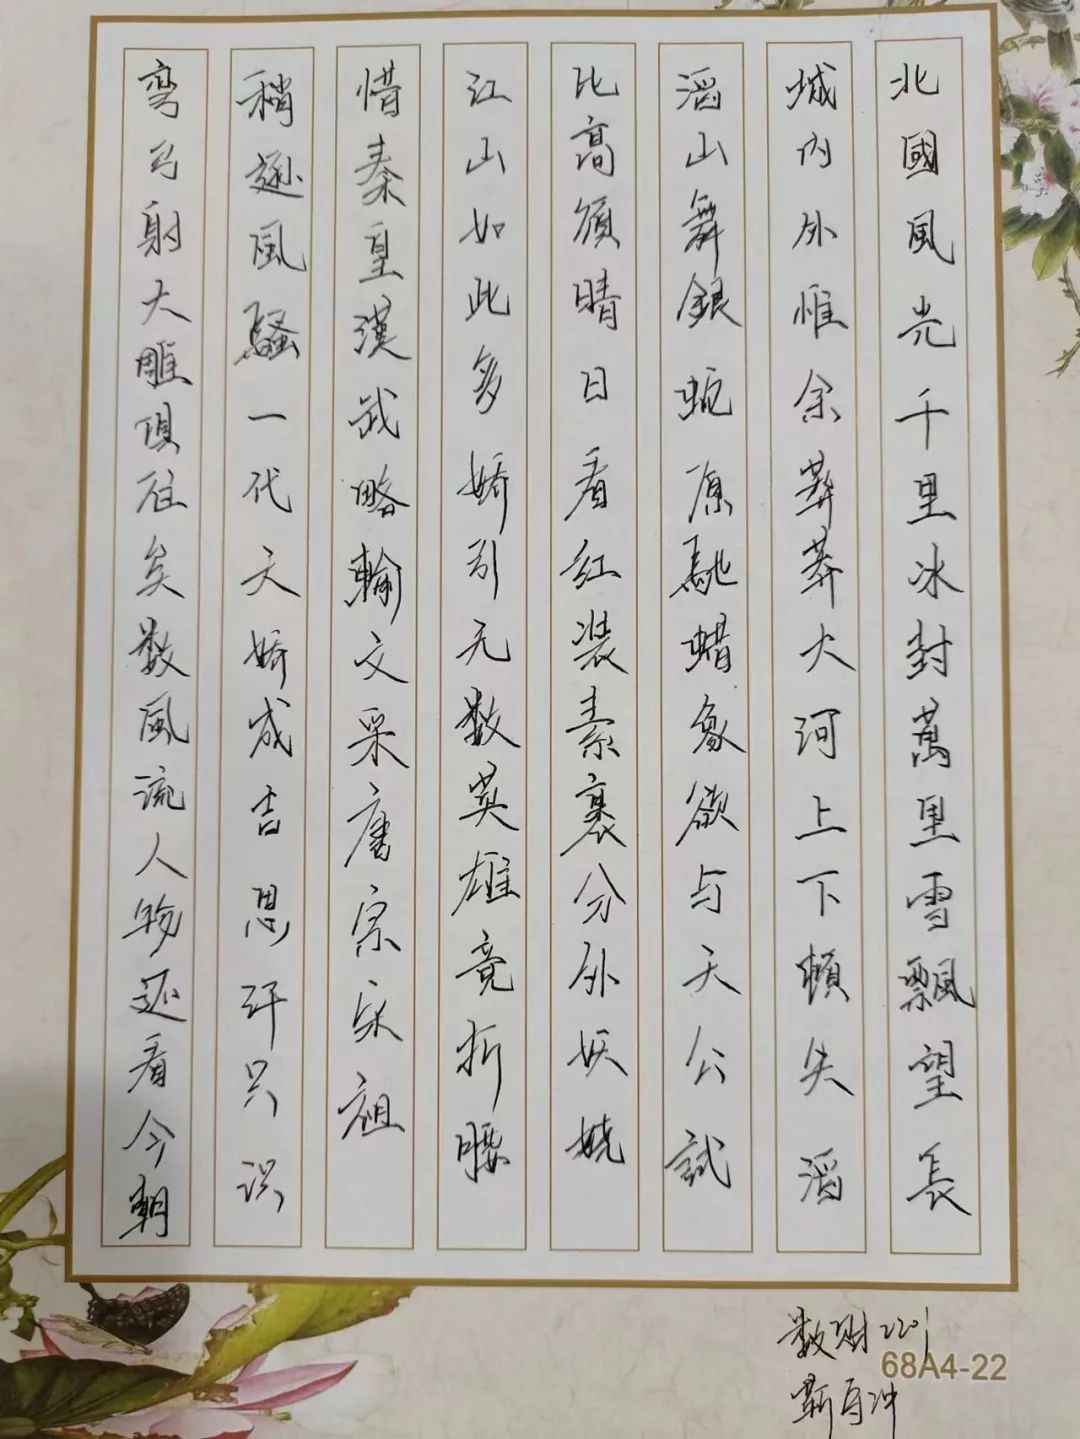 北國風光千里冰封萬里雪飄望長
城内外惟余莽莽大河上下頓失滔
滔山舞銀蛇原馳蜡象欲与天公試
比高須晴日看红装素裹分外妖娆
江山如此多娇引无数英雄竞折腰
惜秦皇漢武略輸文采唐宗宋祖
稍遜風騷一代天娇成吉思汗只识
弯弓射大雕俱往矣数風流人物还看今朝
数财2201
68A4-22
靳百冲